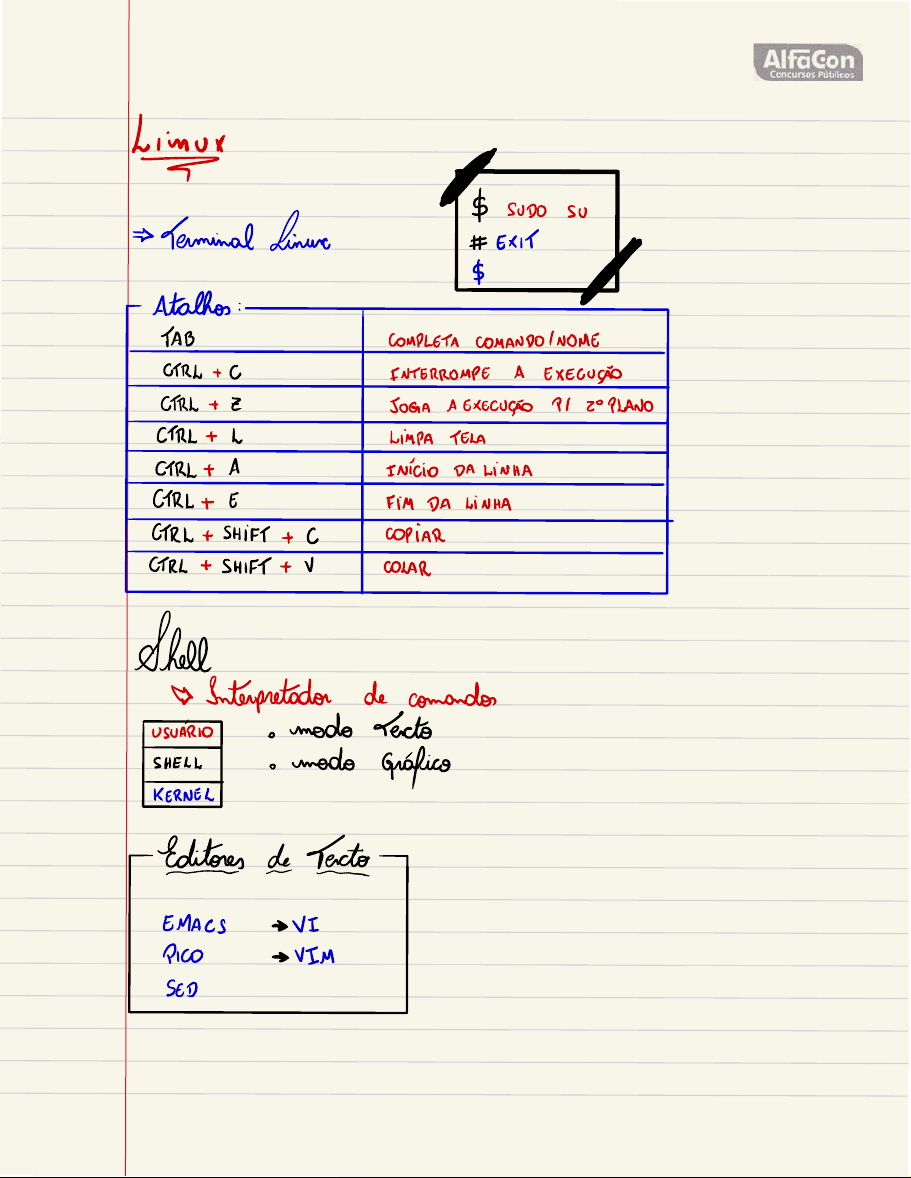 AlfaCon
Concursos Públicos
Linux
$ SUDO SU
⇒ Terminal Linux
# EXIT
$
Atalhos:
TAB COMPLETA COMANDO/NOME
CTRL + C INTERROMPE A EXECUÇÃO
CTRL + Z JOGA A EXECUÇÃO P/ 2º PLANO
CTRL + L LIMPA TELA
CTRL + A INÍCIO DA LINHA
CTRL + E FIM DA LINHA
CTRL + SHIFT + C COPIAR
CTRL + SHIFT + V COLAR
Shell
↳ Interpretador de comandos
USUÁRIO • modo Texto
SHELL • modo Gráfico
KERNEL
Editores de Texto
EMACS → VI
PICO → VIM
SED